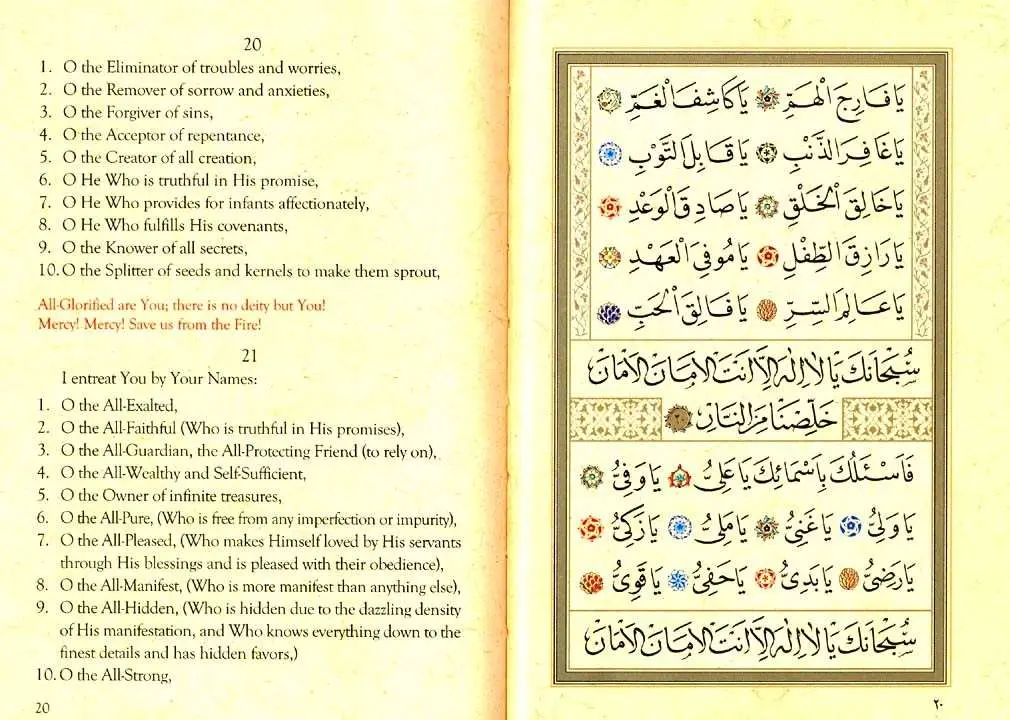 20
1. O the Eliminator of troubles and worries,
2. O the Remover of sorrow and anxieties,
3. O the Forgiver of sins,
4. O the Acceptor of repentance,
5. O the Creator of all creation,
6. O He Who is truthful in His promise,
7. O He Who provides for infants affectionately,
8. O He Who fulfills His covenants,
9. O the Knower of all secrets,
10. O the Splitter of seeds and kernels to make them sprout,
All-Glorified are You; there is no deity but You!
Mercy! Mercy! Save us from the Fire!
21
I entreat You by Your Names:
1. O the All-Exalted,
2. O the All-Faithful (Who is truthful in His promises),
3. O the All-Guardian, the All-Protecting Friend (to rely on),
4. O the All-Wealthy and Self-Sufficient,
5. O the Owner of infinite treasures,
6. O the All-Pure, (Who is free from any imperfection or impurity),
7. O the All-Pleased, (Who makes Himself loved by His servants
through His blessings and is pleased with their obedience),
8. O the All-Manifest, (Who is more manifest than anything else),
9. O the All-Hidden, (Who is hidden due to the dazzling density
of His manifestation, and Who knows everything down to the
finest details and has hidden favors,)
10. O the All-Strong,
20
يَا فَارِجَ الْهَمِّ يَا كَاشِفَ الْغَمِّ
يَا غَافِرَ الذَّنْبِ يَا قَابِلَ التَّوْبِ
يَا خَالِقَ الْخَلْقِ يَا صَادِقَ الْوَعْدِ
يَا رَازِقَ الطِّفْلِ يَا مُوفِيَ الْعَهْدِ
يَا عَالِمَ السِّرِّ يَا فَالِقَ الْحَبِّ
سُبْحَانَكَ يَا لَا اِلٰهَ اِلَّا اَنْتَ الْاَمَانَ الْاَمَانَ
خَلِّصْنَا مِنَ النَّارِ
فَاَسْئَلُكَ بِاَسْمَائِكَ يَا عَلِىُّ يَا وَفِىُّ
يَا وَلِىُّ يَا غَنِىُّ يَا مَلِىُّ يَا زَكِىُّ
يَا رَضِىُّ يَا بَدِىُّ يَا حَفِىُّ يَا قَوِىُّ
سُبْحَانَكَ يَا لَا اِلٰهَ اِلَّا اَنْتَ الْاَمَانَ الْاَمَانَ
٢٠